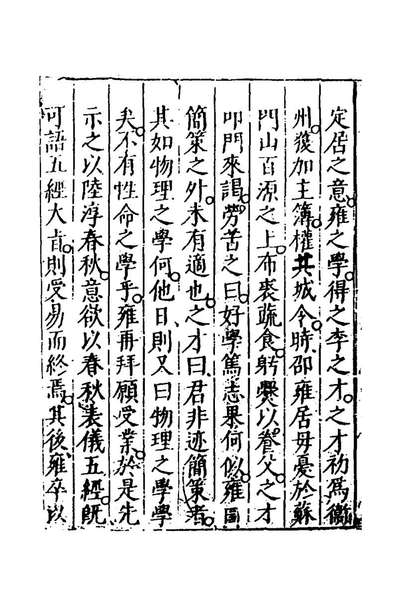 定居之意雍之學得之李之才之才初爲衞
州獲加主簿權共城令時邵雍居母憂於蘇
門山百源之上布裘蔬食躬爨以養父之才
叩門來謁勞苦之曰好學篤志果何似雍曰
簡策之外未有適也之才曰君非迹簡策者
其如物理之學何他日則又曰物理之學學
矣不有性命之學乎雍再拜願受業於是先
示之以陸淳春秋意欲以春秋表儀五經既
可語五經大旨則受易而終焉其後雍卒以